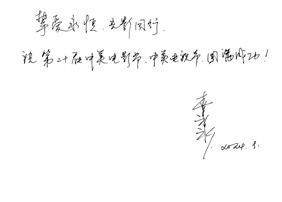 挚爱永恒，光影同行。
祝第二十届中美电影节、中美电视节圆满成功！
2024.9.